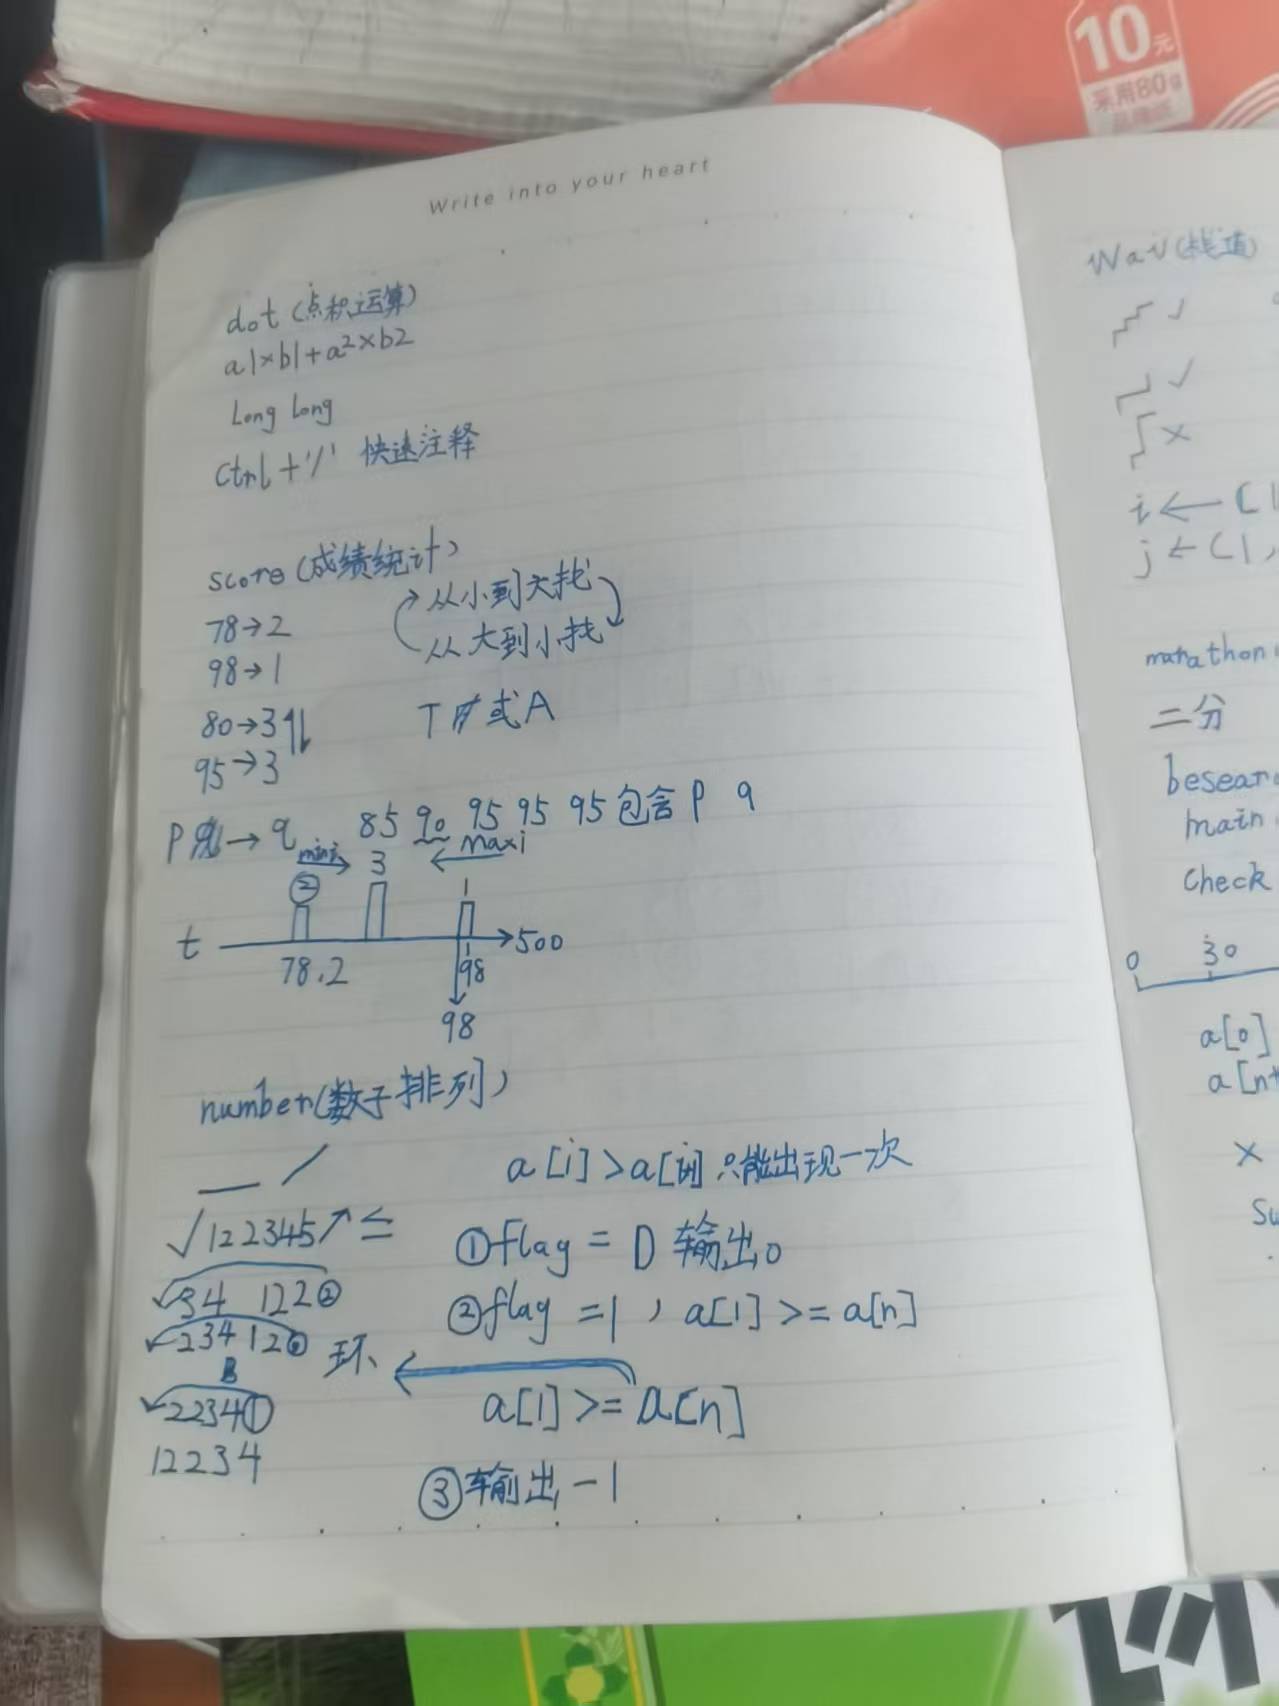 10元
采用80g
Write into your heart
dot (点积运算)
a1×b1+a2×b2
Long Long
Ctrl + '/' 快速注释
score (成绩统计)
78→2
从小到大找
98→1
从大到小找
80→3
T 或 A
95→3
P → q 85 90 95 95 95 包含 P q
mini 3 maxi
② 1
t 500
78.2 98
98
number(数子排列)
a[i]>a[ 只能出现一次
√122345↗≤
①flag = 0 输出0
34 122②
②flag =1, a[1]>=a[n]
23412② 环
2234①
a[1]>=a[n]
12234
③输出-1
Way(栈道)
√
√
×
i←[1
j←[1,
marathon
二分
besear
main
Check
0 30
a[0]
a[n+
×
Su